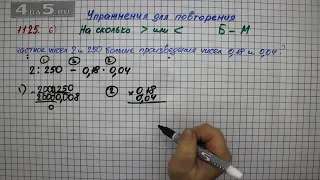 4 5.ru
Упражнения для повторения
1125. б) На сколько > или < Б – М
частное чисел 2 и 250 больше произведения чисел 0,18 и 0,04?
① ③ ②
2 : 250 – 0,18 · 0,04
1) 2000 250 ② × 0,18
2000 0,008 0,04
0